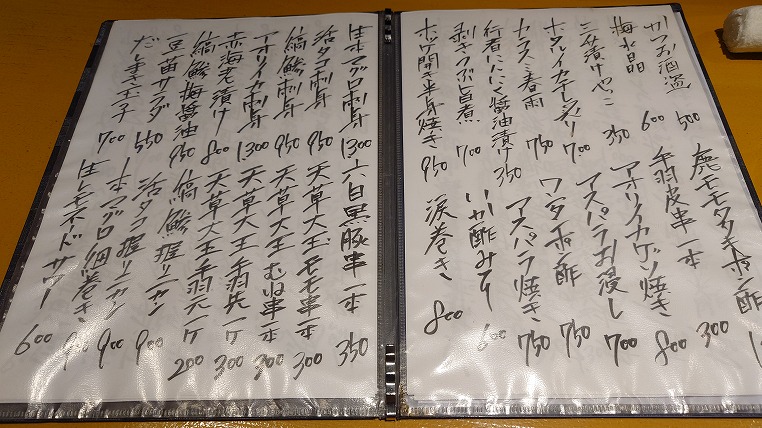 かつお酒盗 500
梅水晶 600
三升漬けやっこ 350
ホタルイカ 700
750
行者にんにく醤油漬け 350
剥きつぶ旨煮 700
ホッケ開き半身焼き 950
鹿モモタタキポン酢
手羽皮串一本 300
アオリイカゲソ焼き 800
アスパラお浸し 700
ポン酢 750
アスパラ焼き 750
600
涙巻き 800
生本マグロ刺身 1300
活タコ刺身 950
縞鯵刺身 950
アオリイカ刺身 1300
赤海老漬け 800
縞鯵梅醤油 950
豆苗サラダ 550
だし巻き玉子 700
六白黒豚串一本 350
天草大王モモ串一本 300
天草大王むね串一本 300
天草大王手羽先一ケ 300
天草大王手羽元一ケ 200
縞鯵握り二カン 900
活タコ握り二カン 900
生本マグロ細巻き
生レモネードサワー 600